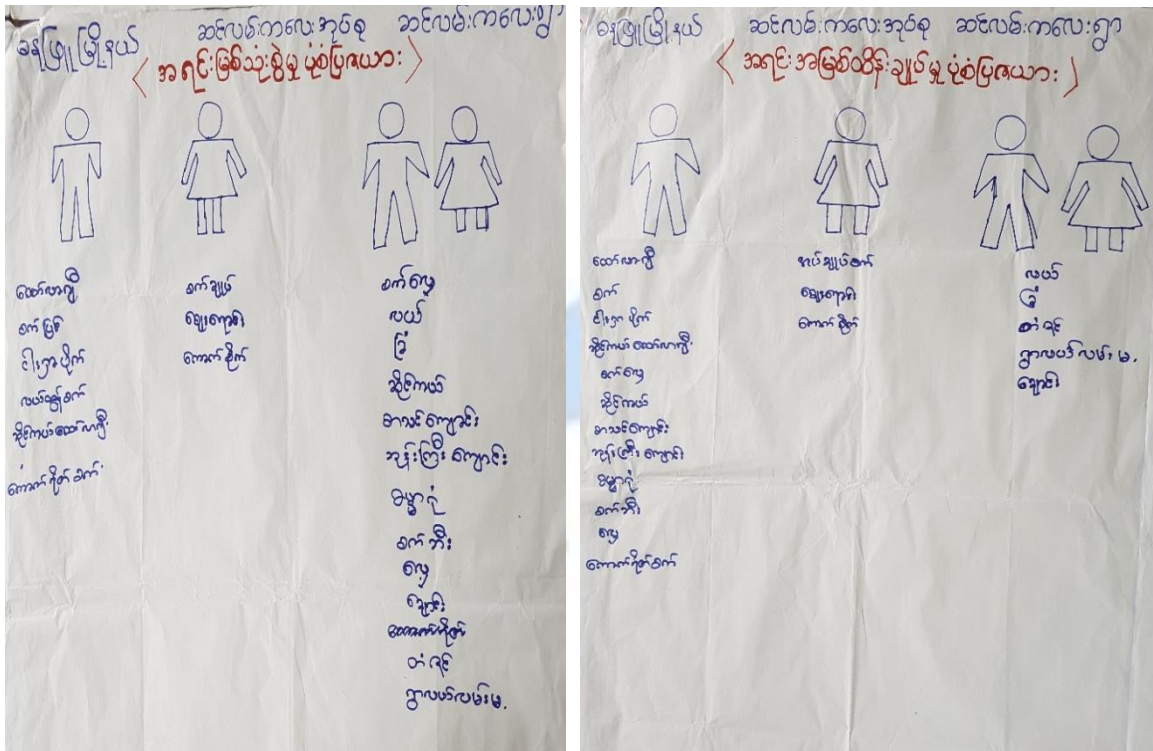 ဓနုဖြူမြို့နယ် ဆင်လမ်းကလေးအုပ်စု ဆင်လမ်းကလေးရွာ
< အရင်းမြစ်သုံးစွဲမှု ပုံစံပြဇယား >
ထော်လာဂျီ
စက်ပြင်
ငါးရှာပိုက်
လယ်ထွန်စက်
ဆိုင်ကယ်ထော်လာဂျီ
ကောက်ရိတ်စက်
စက်ချုပ်
ဈေးရောင်း
ကောက်စိုက်
စက်လှေ
လယ်
ခြံ
ဆိုင်ကယ်
စာသင်ကျောင်း
ဘုန်းကြီးကျောင်း
ဓမ္မာရုံ
စက်ဘီး
လှေ
ချောင်း
တံငါ
ရွာလယ်လမ်းမ
ဓနုဖြူမြို့နယ် ဆင်လမ်းကလေးအုပ်စု ဆင်လမ်းကလေးရွာ
< အရင်းအမြစ်ထိန်းချုပ်မှု ပုံစံပြဇယား >
ထော်လာဂျီ
စက်
ငါးရှာပိုက်
ဆိုင်ကယ်ထော်လာဂျီ
စက်လှေ
ဆိုင်ကယ်
စာသင်ကျောင်း
ဘုန်းကြီးကျောင်း
ဓမ္မာရုံ
စက်ဘီး
လှေ
ကောက်ရိတ်စက်
အပ်ချုပ်စက်
ဈေးရောင်း
ကောက်စိုက်
လယ်
ခြံ
ရွာလယ်လမ်းမ
ချောင်း